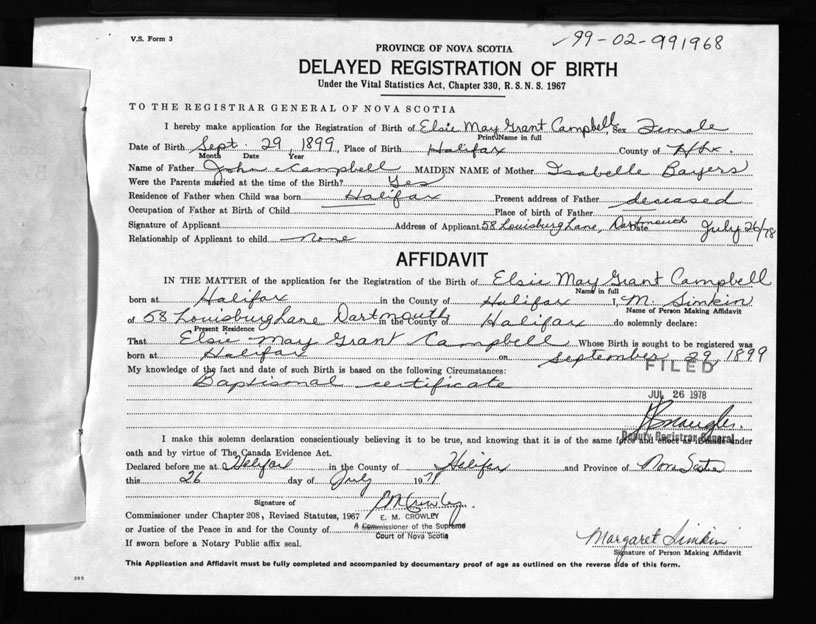 V.S. Form 3
99-02-991968
PROVINCE OF NOVA SCOTIA
DELAYED REGISTRATION OF BIRTH
Under the Vital Statistics Act, Chapter 330, R.S.N.S. 1967
TO THE REGISTRAR GENERAL OF NOVA SCOTIA
I hereby make application for the Registration of Birth of Elsie May Grant Campbell Sex Female
Print Name in full
Date of Birth Sept. 29, 1899, Place of Birth Halifax County of Hfx.
Month Date Year
Name of Father John Campbell MAIDEN NAME of Mother Isabelle Bayers
Were the Parents married at the time of the Birth? Yes
Residence of Father when Child was born Halifax Present address of Father deceased
Occupation of Father at Birth of Child Place of birth of Father
Signature of Applicant Address of Applicant 58 Louisburg Lane, Dartmouth Date July 26/78
Relationship of Applicant to child none
AFFIDAVIT
IN THE MATTER of the application for the Registration of the Birth of Elsie May Grant Campbell
Name in full
born at Halifax in the County of Halifax I, M. Simkin
Name of Person Making Affidavit
of 58 Louisburg Lane Dartmouth in the County of Halifax do solemnly declare:
Present Residence
That Elsie May Grant Campbell Whose Birth is sought to be registered was
born at Halifax on September 29, 1899
FILED
My knowledge of the fact and date of such Birth is based on the following Circumstances:
Baptismal certificate
JUL 26 1978
Deputy Registrar General
I make this solemn declaration conscientiously believing it to be true, and knowing that it is of the same force and effect as if made under
oath and by virtue of The Canada Evidence Act.
Declared before me at Halifax in the County of Halifax and Province of Nova Scotia
this 26 day of July 1978
Signature of
Commissioner under Chapter 208, Revised Statutes, 1967 E. M. CROWLEY
or Justice of the Peace in and for the County of A Commissioner of the Supreme
Court of Nova Scotia
If sworn before a Notary Public affix seal.
Margaret Simkin
Signature of Person Making Affidavit
This Application and Affidavit must be fully completed and accompanied by documentary proof of age as outlined on the reverse side of this form.